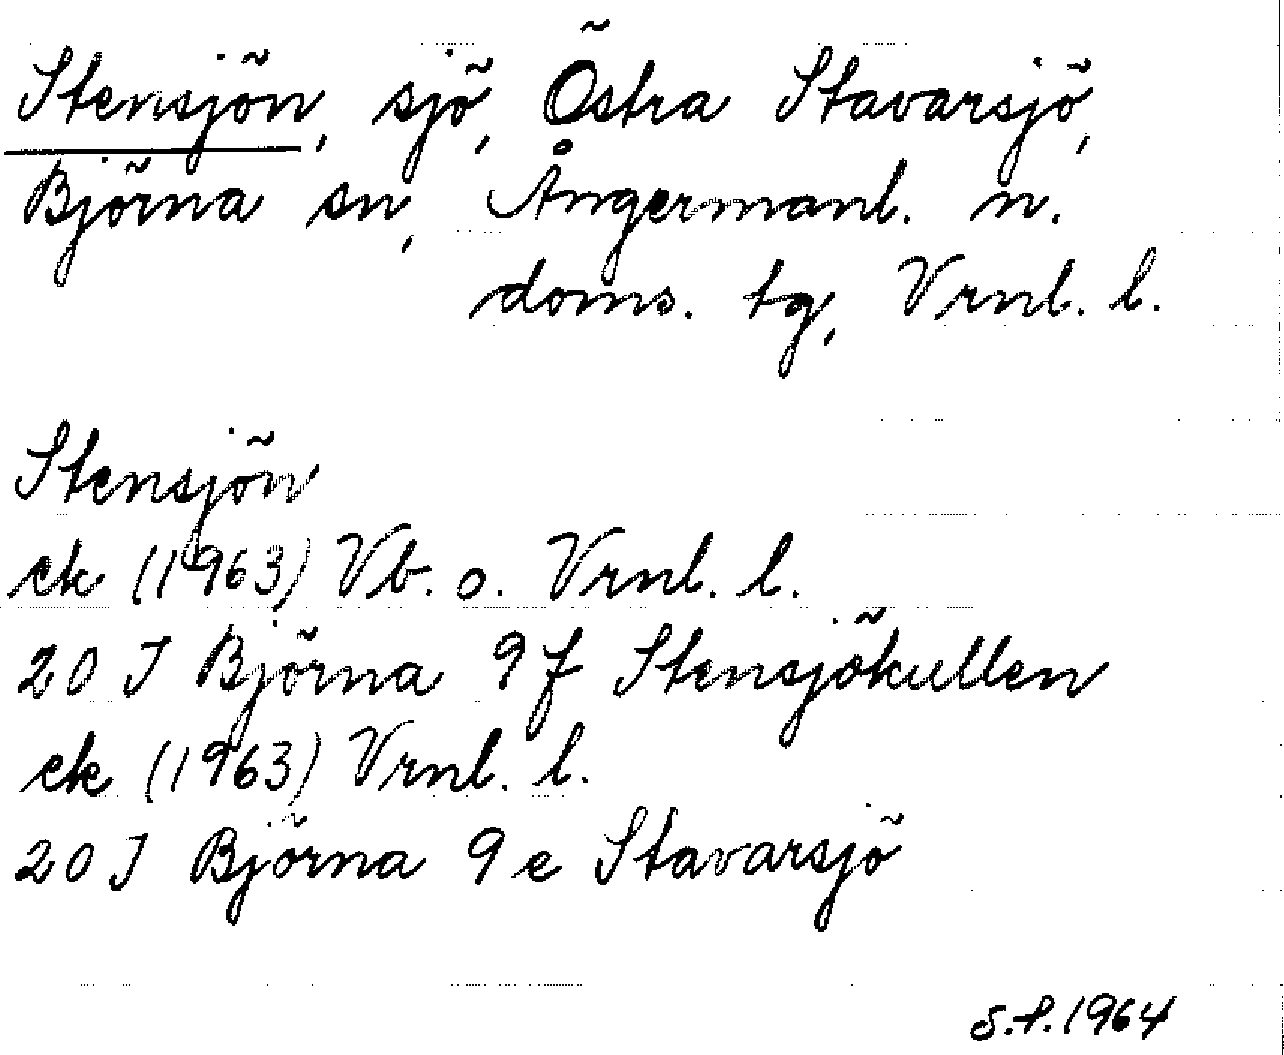 Stensjön, sjö, Östra Stavarsjö,
Björna sn, Ångermanl. n.
doms. tg, Vrnl. l.
Stensjön
ek (1963) Vb. o. Vrnl. l.
20 J Björna 9 f Stensjökullen
ek (1963) Vrnl. l.
20 J Björna 9 e Stavarsjö
S.P. 1964